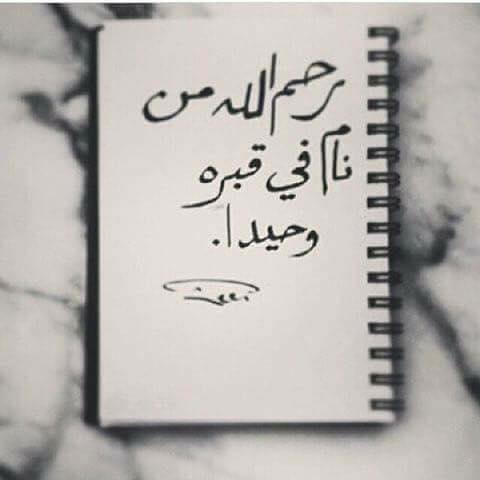 رحم الله من
نام في قبره
وحيدا.